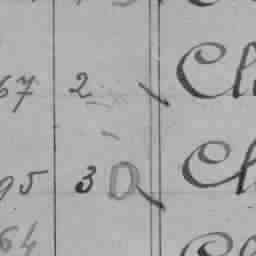 67 2 Cl
95 30 Cl
64